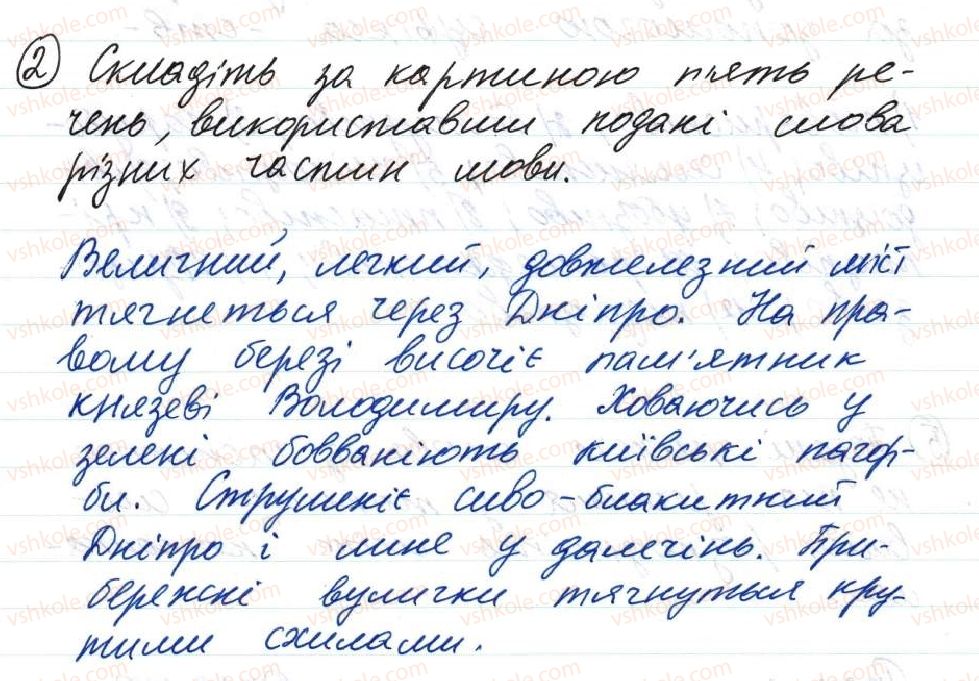 ② Складіть за картиною п'ять ре-
чень, використавши подані слова
різних частин мови.
Величний, легкий, довжелезний міст
тягнеться через Дніпро. На пра-
вому березі височіє пам'ятник
князеві Володимиру. Ховаючись у
зелені бовваніють київські пагор-
би. Струменіє сиво-блакитний
Дніпро і лине у далечінь. При-
бережні вулички тягнуться кру-
тими схилами.